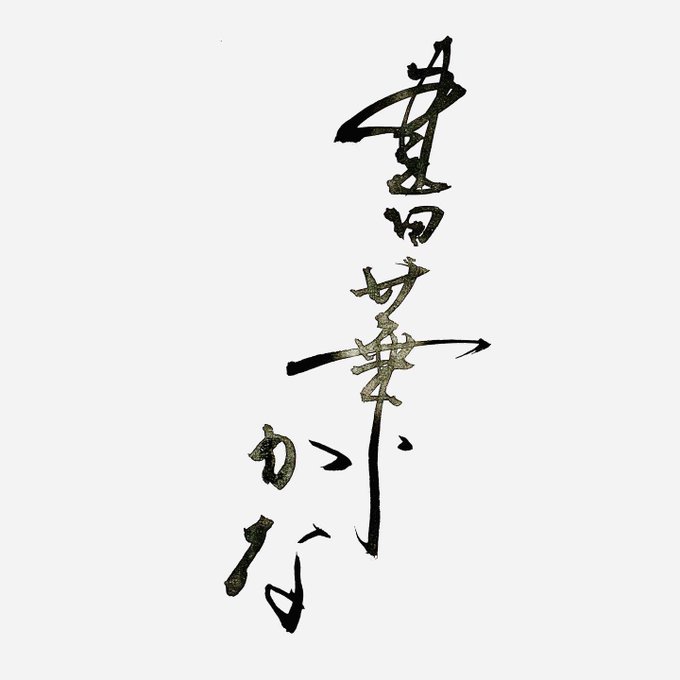 書華かな